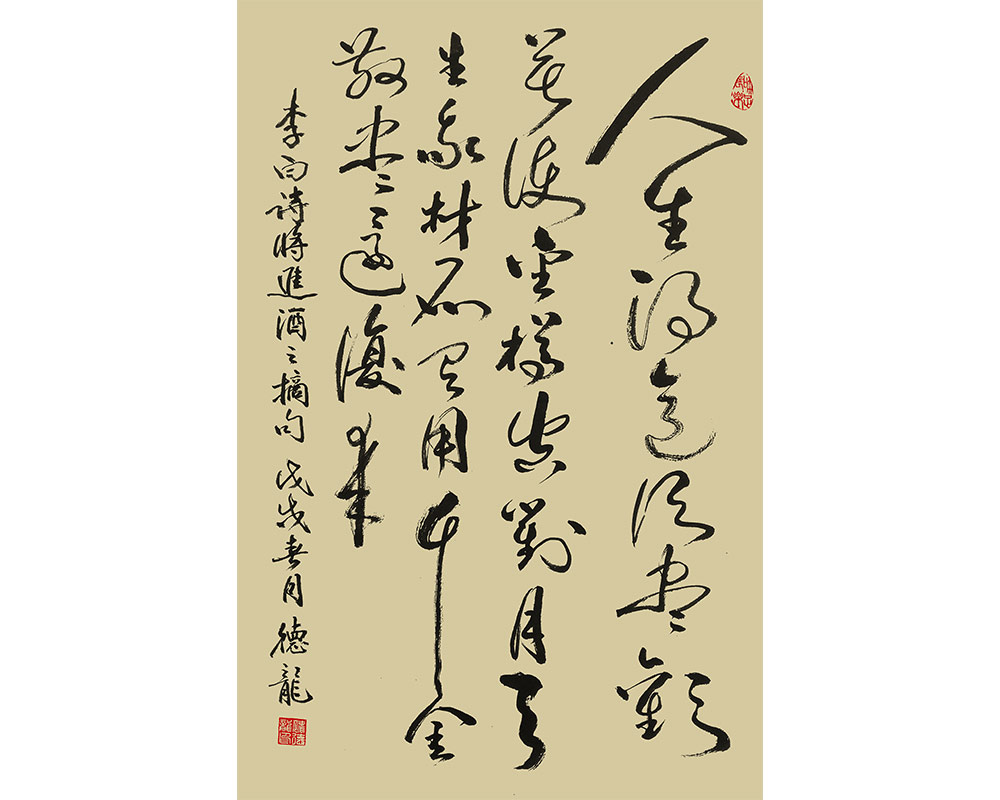 人生得意須盡歡
莫使金樽空對月天
生我材必有用千金
散盡還復來
李白詩將進酒之摘句 戊戌春月 德龍